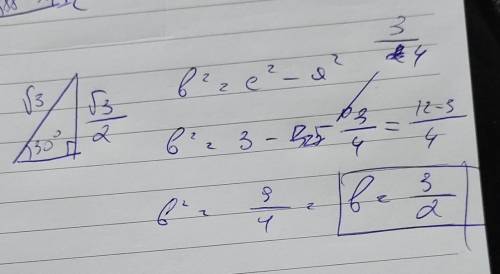 √3
√3/2
30°
b² = c² - a²
3/4
b² = 3 - 3/4 = 12-3/4
b² = 9/4 =
b = 3/2